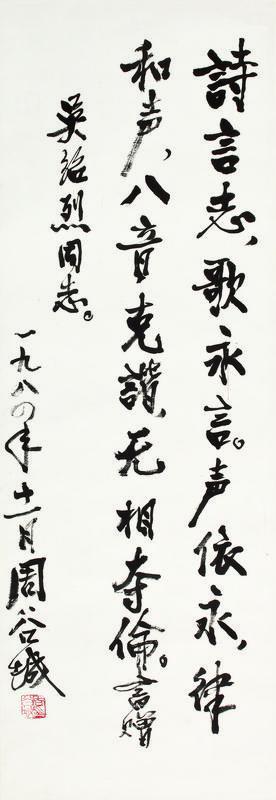 詩言志，歌永言。声依永，律
和声，八音克諧，无相夺倫。書贈
吴紹烈同志。
一九八〇年十一月周谷城